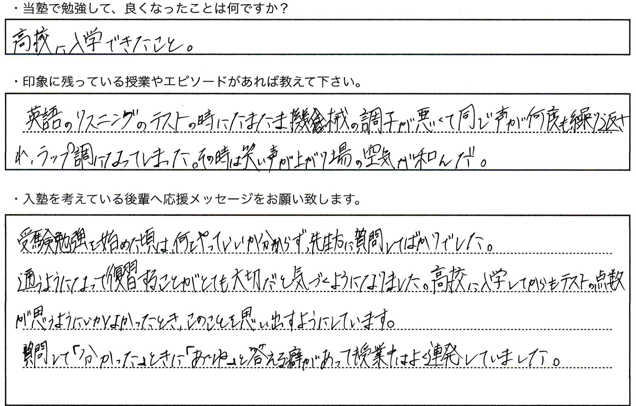 ・当塾で勉強して、良くなったことは何ですか？
高校に入学できたこと。
・印象に残っている授業やエピソードがあれば教えて下さい。
英語のリスニングのテストの時にたまたま機械の調子が悪くて同じ声が何度も繰り返さ
れ、ラップ調になってしまった。その時は笑い声が上がり場の空気が和んだ。
・入塾を考えている後輩へ応援メッセージをお願い致します。
受験勉強を始めた頃は、何をやっていいか分からず、先生方に質問してばかりでした。
通うようになって復習することがとても大切だと気づくようになりました。高校に入学してからもテストの点数
が思うようにいかなかったとき、このことを思い出すようにしています。
質問して「分かった」ときに「あーね」と答える癖があって授業中はよく連発していました。